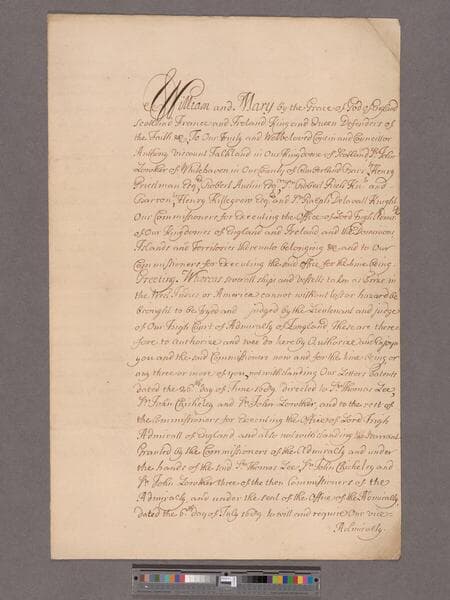 William and Mary by the Grace of God of England
Scotland France and Ireland King and Queen Defenders of
the Faith &c. To Our Trusty and Welbeloved Cousin and Councillor
Anthony Viscount Falkland in Our Kingdome of Scotland Sr. John
Lowther of Whitehaven in Our County of Cumberland Henry
Priestman Esqr. Robert Austin Esqr. Sr. Robert Rich Knt. and
Baront. Henry Killegrew Esqr. and Sr. Ralph Delavall Knight
Our Commissioners for Executing the Office of Lord High
of Our Kingdomes of England and Ireland and the Dominions
Islands and Territories thereunto belonging &c. and to Our
Commissioners for Executing the said Office for the time being
Greeting. Whereas severall ships and vessells taken as Prize in
the West Indies or America cannot without losse or hazard be
brought to be tryed and judged by the Lieutenant and Judge
of Our High Court of Admiralty of England. These are there
fore to Authorize and wee do hereby Authorize and
you and the said Commissioners now and for the time being or
any three or more of you notwithstanding Our Letters Patents
dated the 26th. day of June 1689 directed to Sr. Thomas Lee,
Sr. John Chicheley and Sr. John Lowther, and to the rest of
the Commissioners for Executing the Office of Lord High
Admirall of England and also notwithstanding the Warrant
Granted by the Commissioners of the Admiralty and under
the hands of the said Sr. Thomas Lee Sr. John Chicheley and
Sr. John Lowther three of the then Commissioners of the
Admiralty, and under the seal of the Office of the Admiralty,
dated the 6th. day of July 1689 to will and require Our Vice-
Admiralty